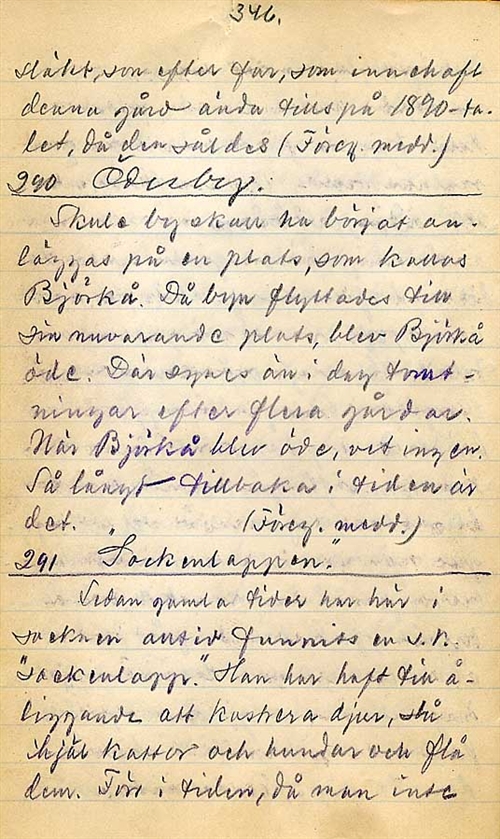 346.
släkt, son efter far, som innehaft
denna gård ända tills på 1890-ta-
let, då den såldes (Föreg. medd.)
290 Ödesby.
Skule by skall ha börjat an-
läggas på en plats, som kallas
Björkå. Då byn flyttades till
sin nuvarande plats, blev Björkå
öde. Där synes än i dag tomt-
ningar efter flera gårdar.
När Björkå blev öde, vet ingen.
Så långt tillbaka i tiden är
det. (Föreg. medd.)
291 "Sockenlappen."
Sedan gamla tider har här i
socknen alltid funnits en s.k.
"sockenlapp." Han har haft till å-
liggande att kastrera djur, slå
ihjäl kattor och hundar och flå
dem. Förr i tiden, då man inte